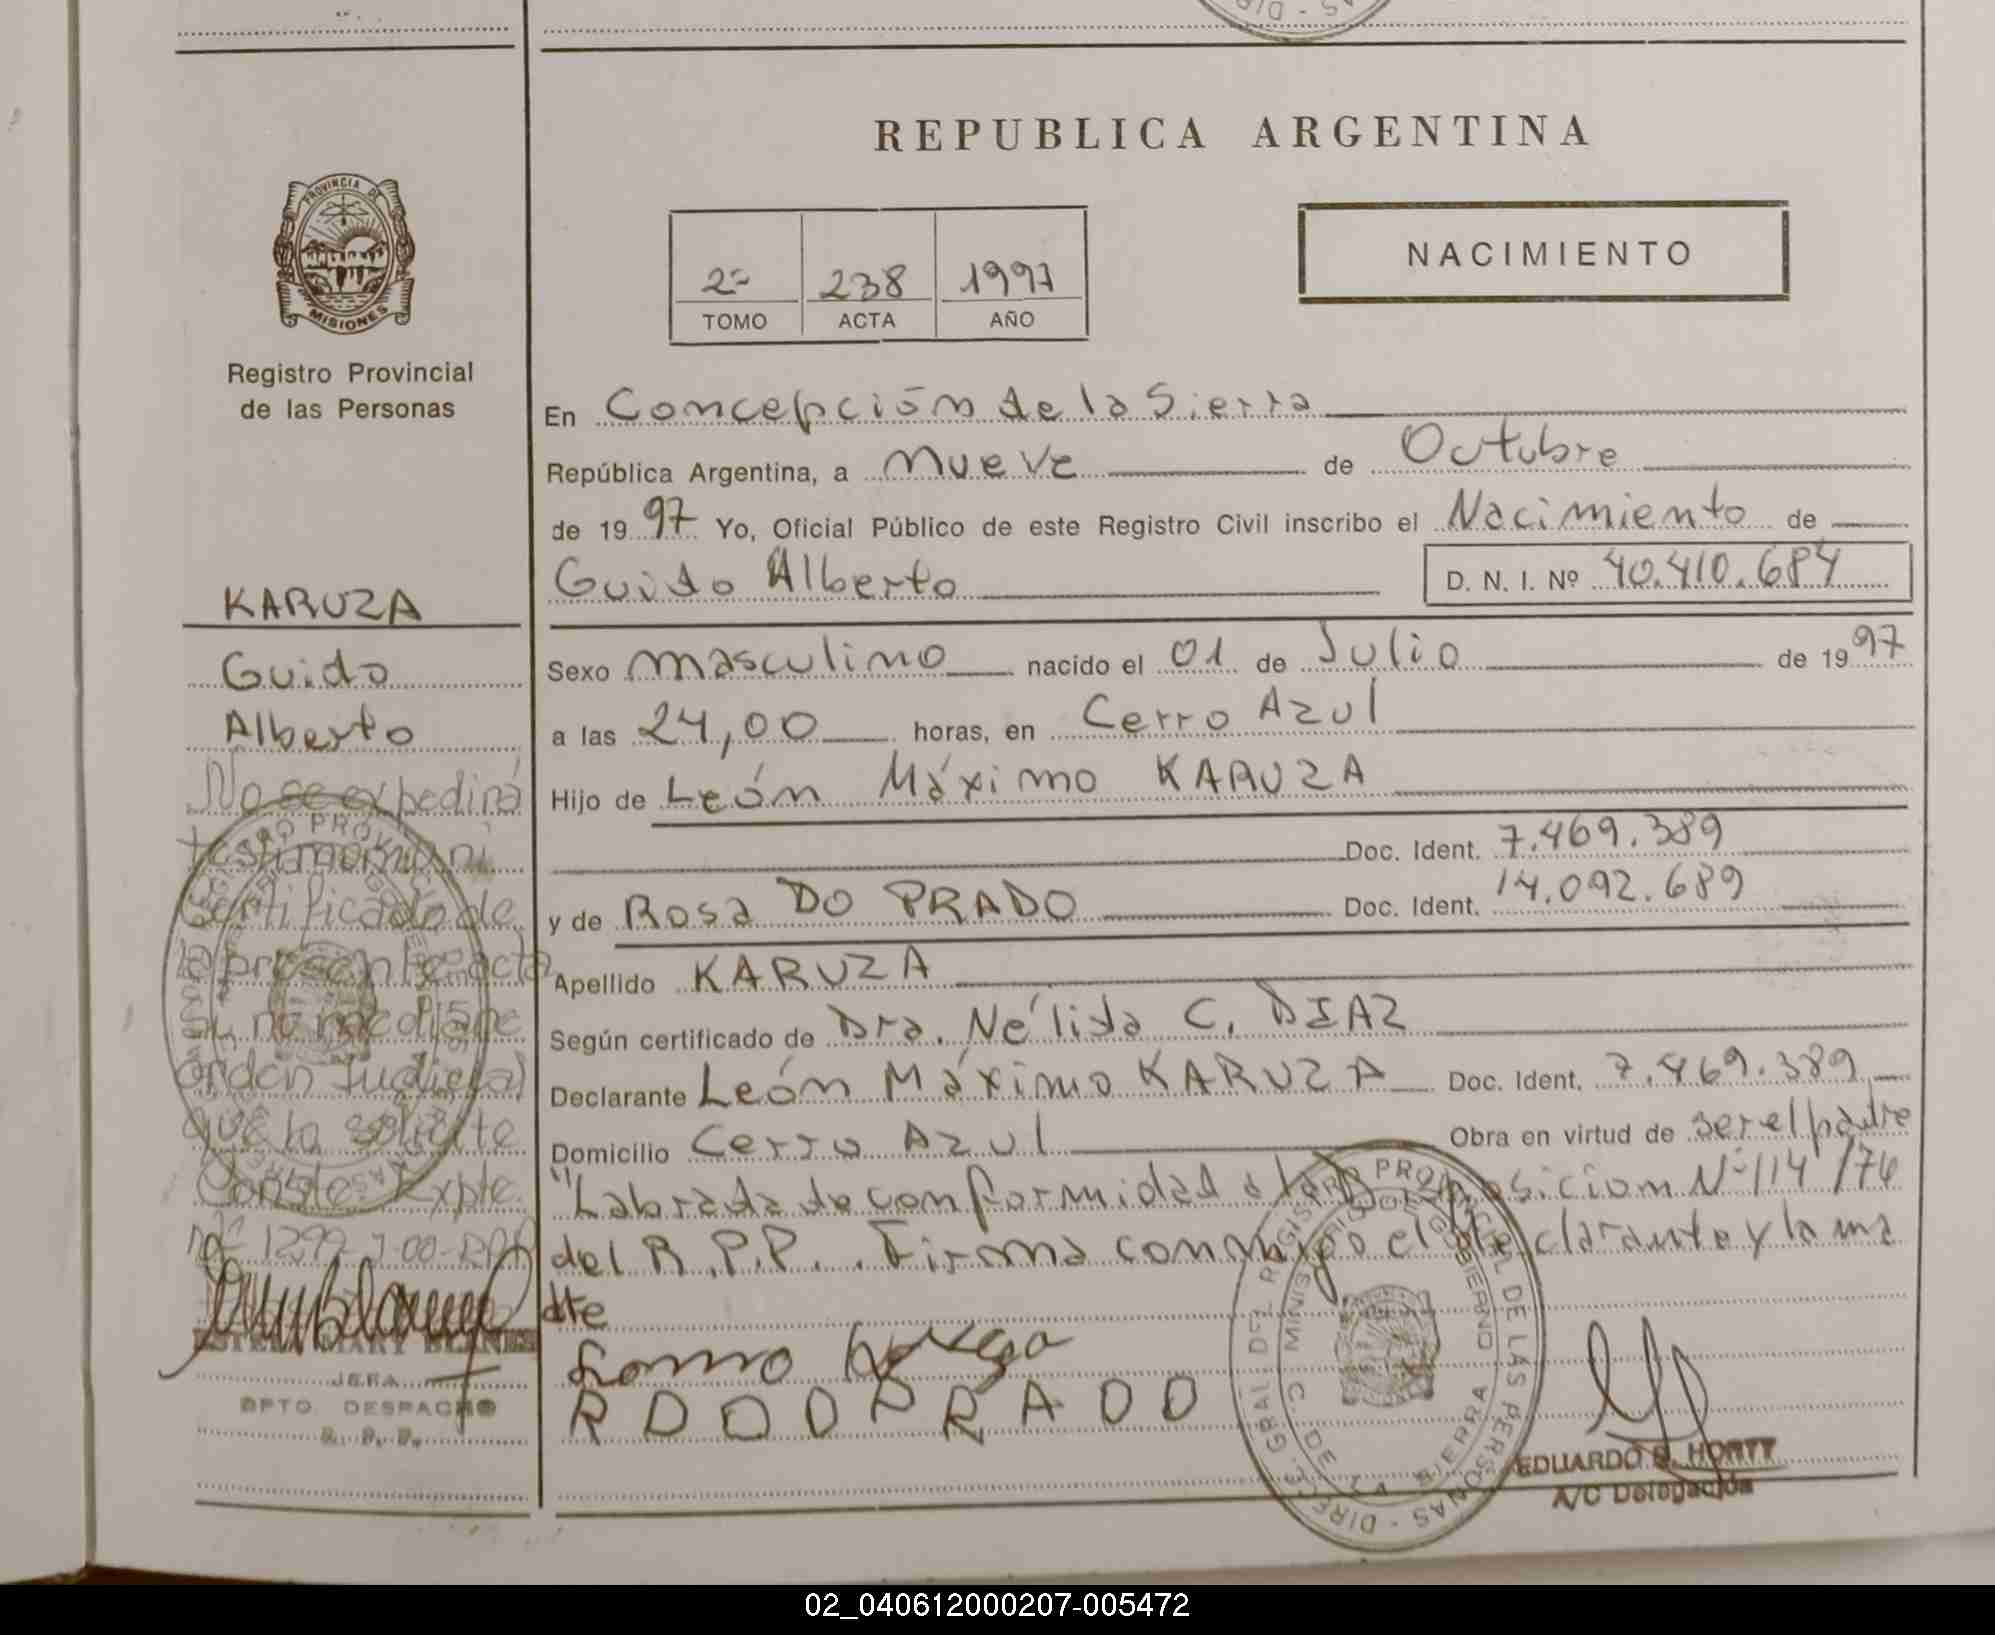 REPUBLICA ARGENTINA
PROVINCIA DE
MISIONES
Registro Provincial
de las Personas
2º 238 1997
TOMO ACTA AÑO
NACIMIENTO
En Concepción de la Sierra
República Argentina, a nueve de Octubre
de 19 97 Yo, Oficial Público de este Registro Civil inscribo el Nacimiento de
Guido Alberto D. N. I. Nº 40.410.684
Sexo masculino nacido el 01 de Julio de 19 97
a las 24,00 horas, en Cerro Azul
Hijo de León Máximo KARUZA
Doc. Ident. 7.469.389
y de Rosa DO PRADO Doc. Ident. 14.092.689
Apellido KARUZA
Según certificado de Dra. Nélida C. DIAZ
Declarante León Máximo KARUZA Doc. Ident. 7.469.389
Domicilio Cerro Azul Obra en virtud de ser el padre
"Labrada de conformidad a la Disposicion Nº 114/74
del R.P.P.. Firma conmigo el declarante y la ma
dre
R DO DPRADO
EDUARDO HORTT
A/C Delegación
KARUZA
Guido
Alberto
No se expedirá
testimonio ni
certificado de
la presente acta
si no mediare
orden Judicial
que lo solicite
Conste Expte.
nº 1299
JEFA
DPTO. DESPACHO
R. P. P.
02_040612000207-005472